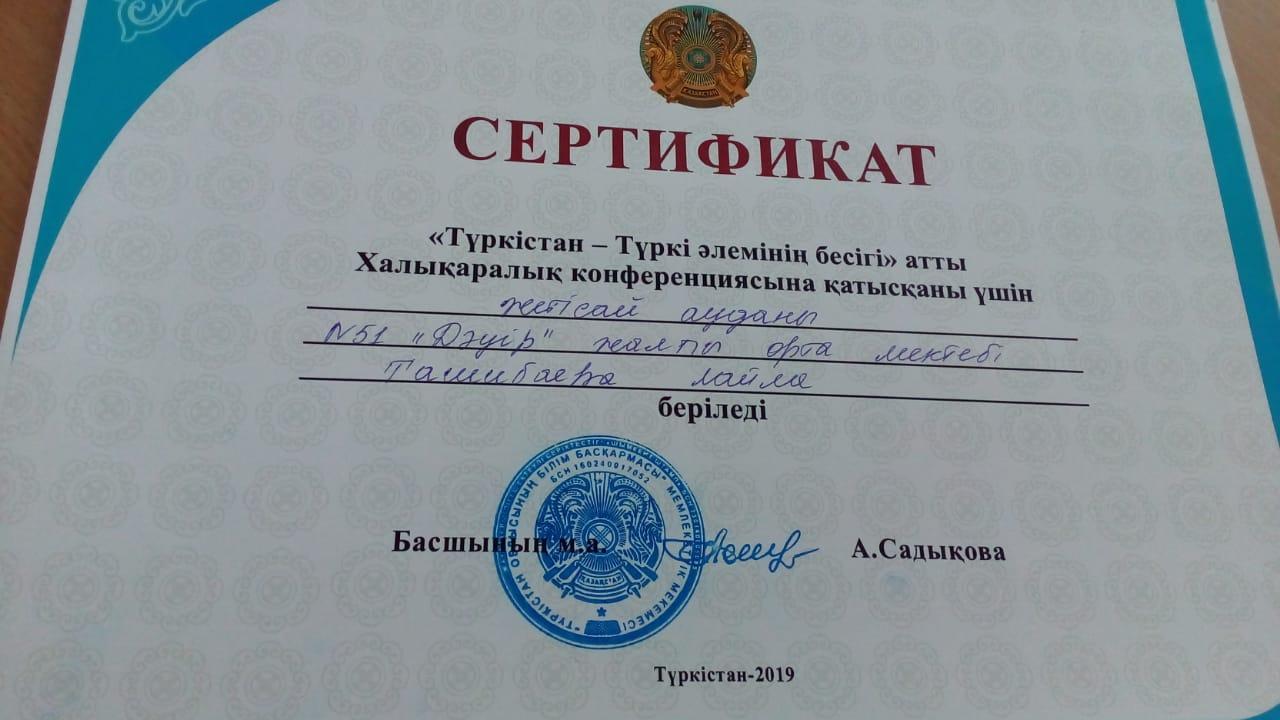 ҚАЗАҚСТАН
СЕРТИФИКАТ
«Түркістан – Түркі әлемінің бесігі» атты
Халықаралық конференциясына қатысқаны үшін
жетісай ауданы
N51 "Дәуір" жалпы орта мектебі
Ташибаева Лайла
беріледі
"ТҮРКІСТАН ОБЛЫСЫНЫҢ БІЛІМ БАСҚАРМАСЫ" МЕМЛЕКЕТТІК МЕКЕМЕСІ
БСН 160240017052
ҚАЗАҚСТАН
Басшының м.а.
А.Садықова
Түркістан-2019